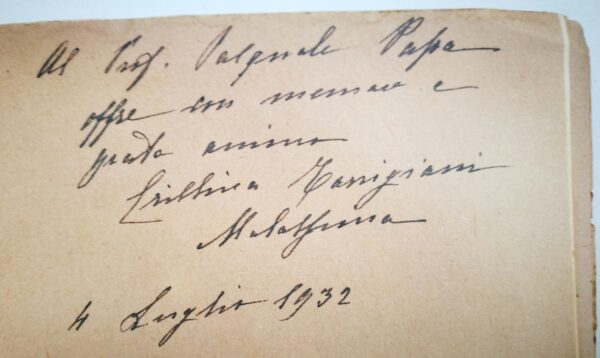 Al Prof. Pasquale Papa
offre con memore e
grato animo
Cristina
4 Luglio 1932